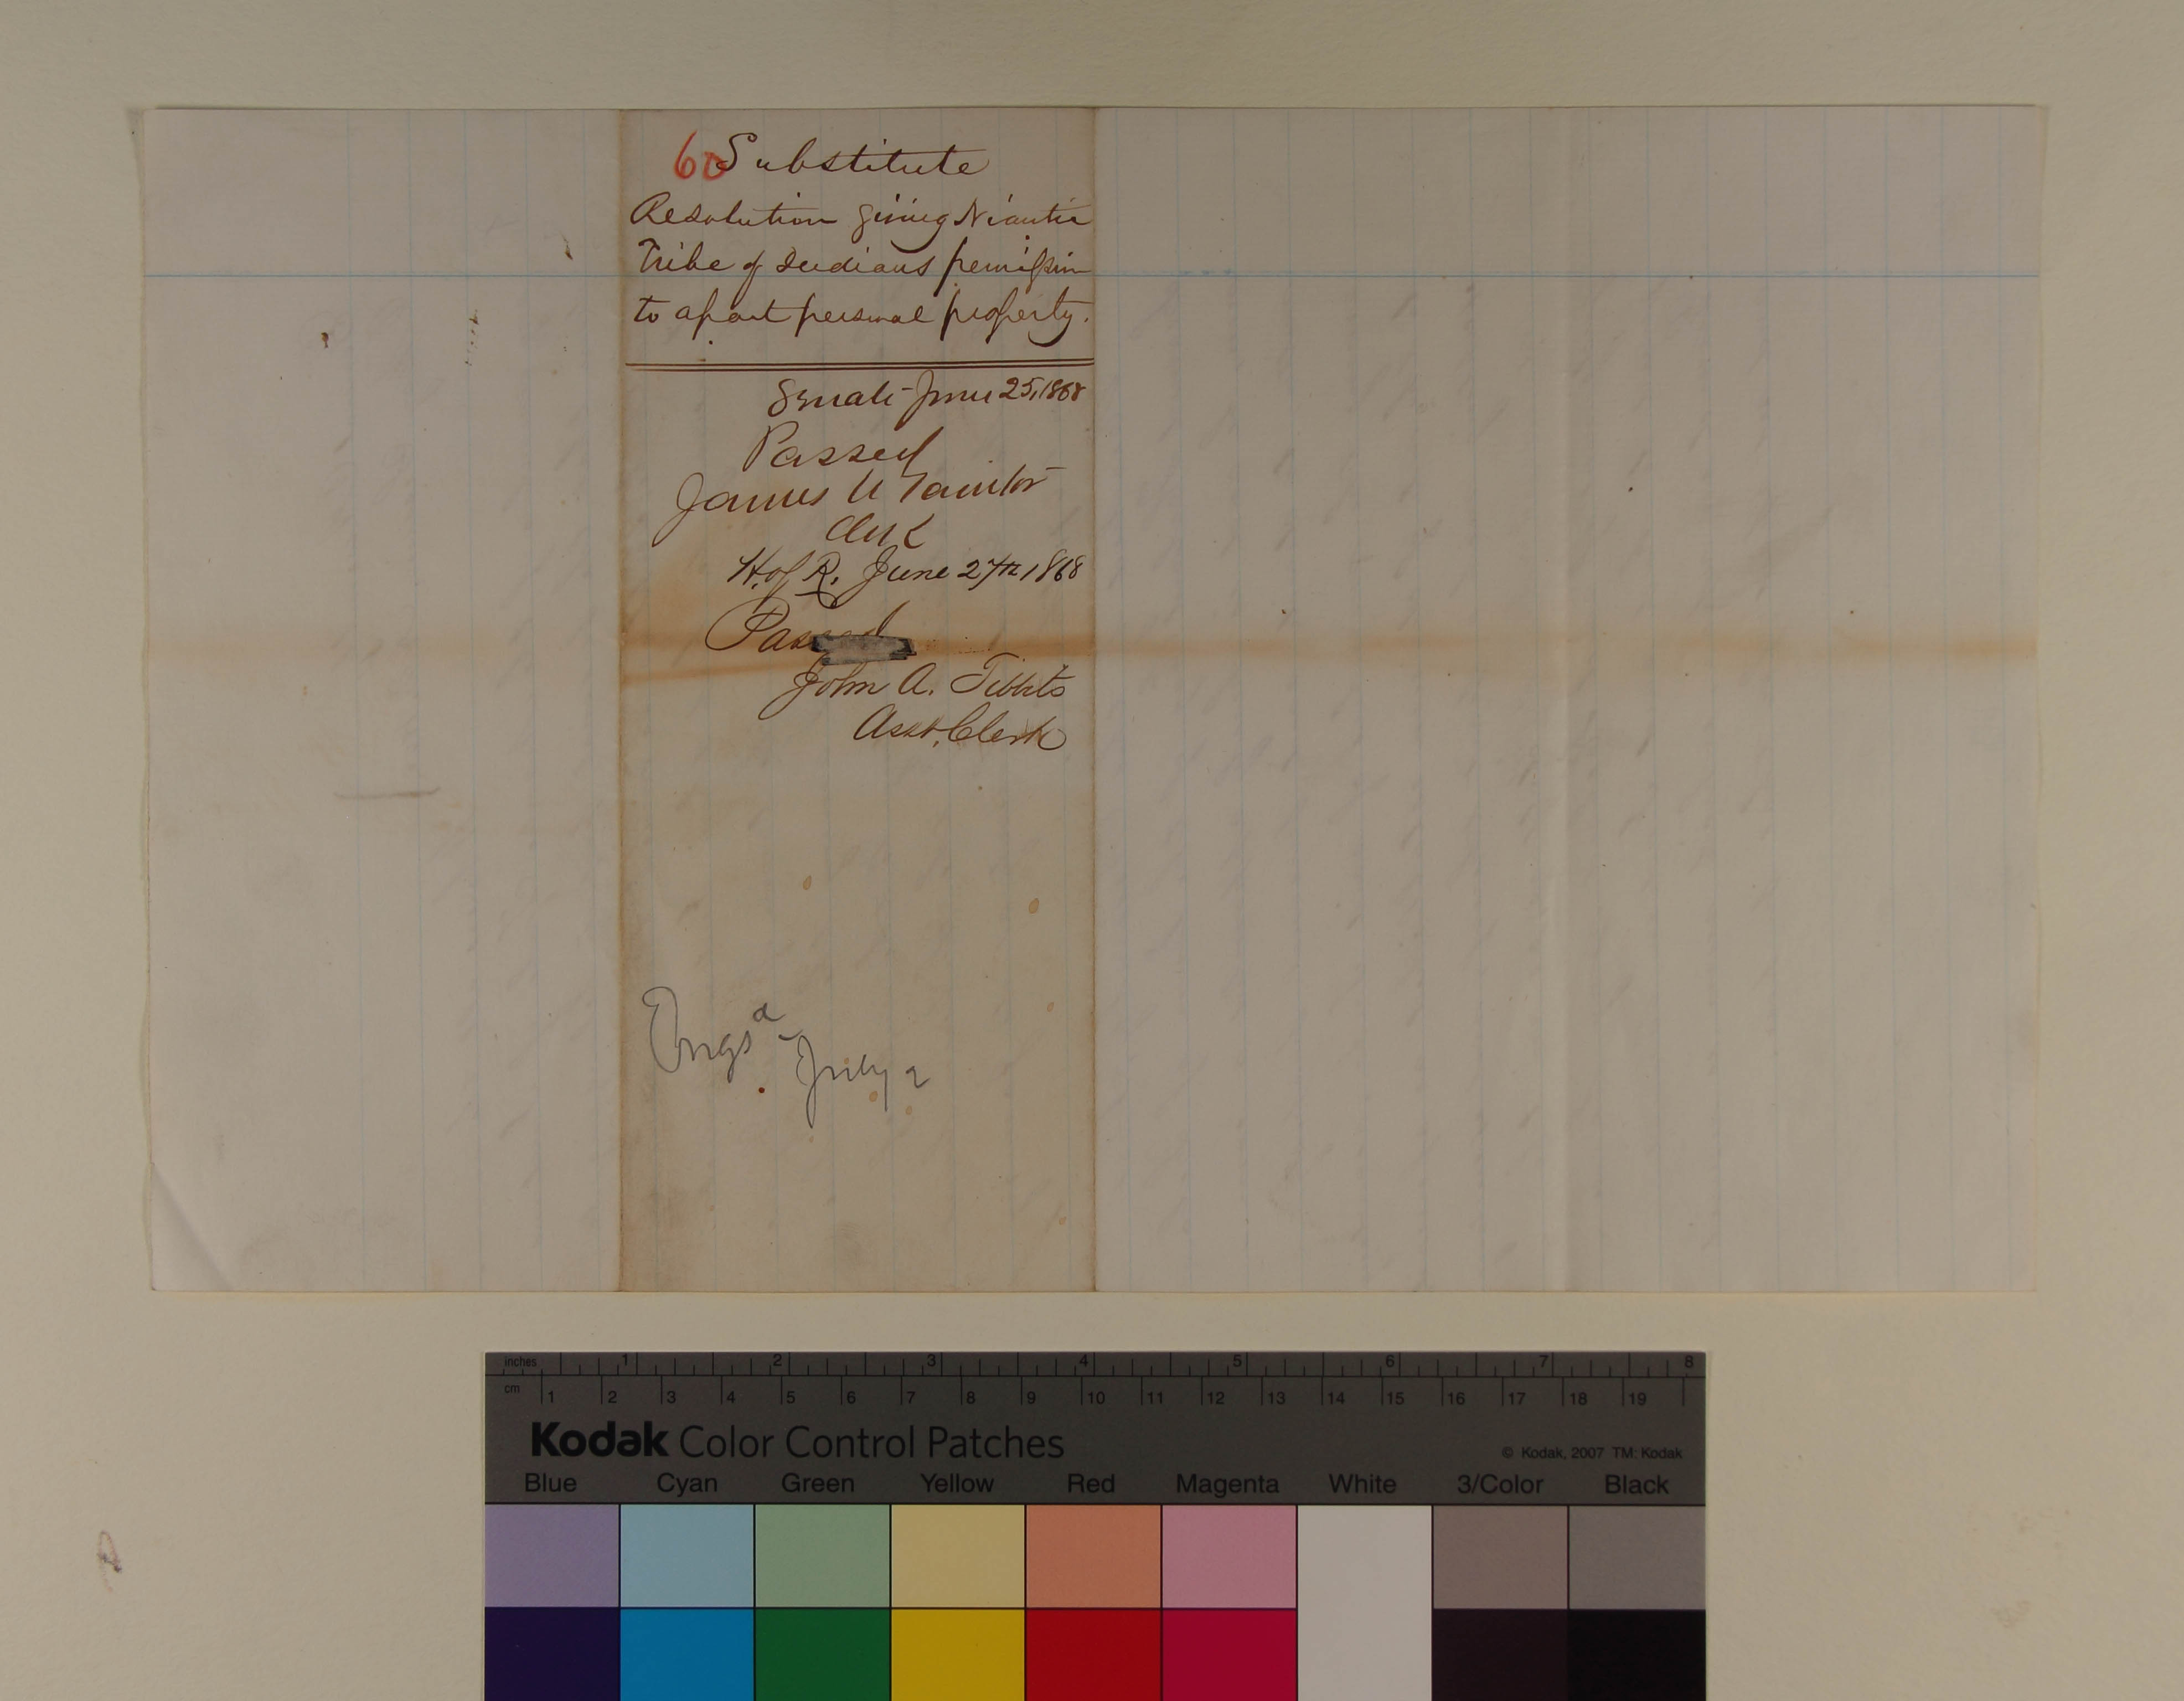 60 Substitute
Resolution giving Niantic
Tribe of Indians permission
to apart personal property.
Senate June 25, 1868
Passed
James U Taintor
Clerk
H. of R. June 27th 1868
Passed
John A. Tibbits
Asst. Clerk
Engsd
July 2
inches 1 2 3 4 5 6 7 8
cm 1 2 3 4 5 6 7 8 9 10 11 12 13 14 15 16 17 18 19
Kodak Color Control Patches
© Kodak, 2007 TM: Kodak
Blue Cyan Green Yellow Red Magenta White 3/Color Black